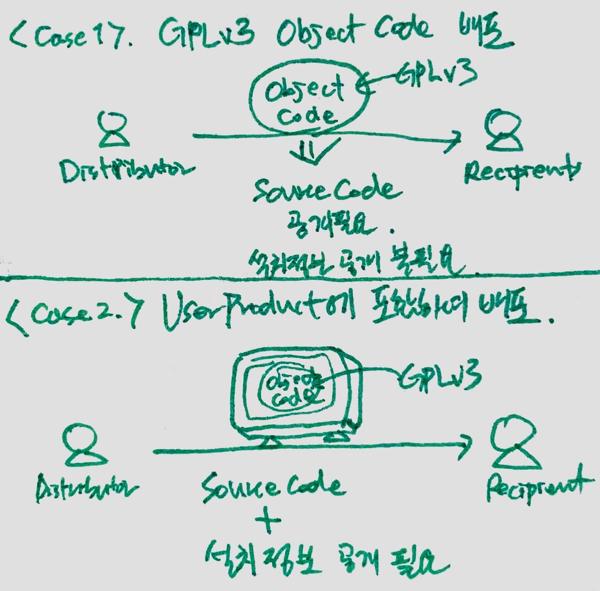 <Case 1>. GPLv3 Object Code 배포
Object
Code
GPLv3
Distributor
Recipient
Source Code
공개필요.
설치정보 공개 불필요.
<Case 2.> User Product에 포함하여 배포.
Object
Code
GPLv3
Distributor
Recipient
Source Code
+
설치정보 공개 필요